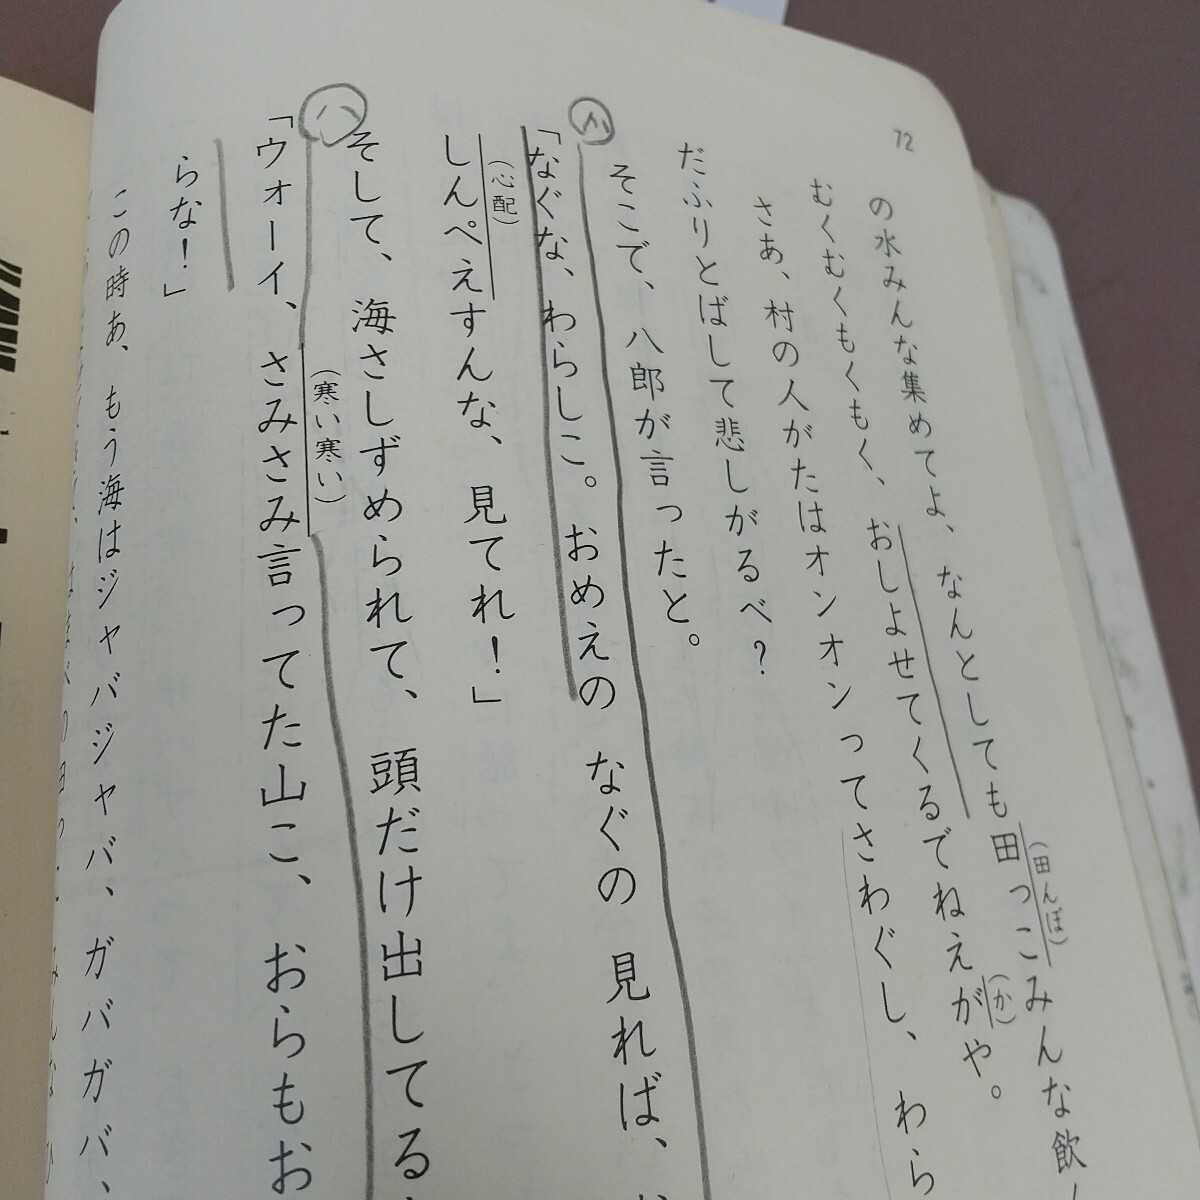 72
の水みんな集めてよ、なんとしても田っこみんな飲
(田んぼ)
むくむくもくもく、おしよせてくるでねえがや。
(か)
さあ、村の人がたはオンオンってさわぐし、わら
だふりとばして悲しがるべ?
そこで、八郎が言ったと。
ハ
「なぐな、わらしこ。おめえの なぐの 見れば、
しんぺえすんな、見てれ!」
(心配)
そして、海さしずめられて、頭だけ出してる
ハ
「ウォーイ、さみさみ言ってた山こ、おらもお
(寒い寒い)
らな!」
この時あ、もう海はジャバジャバ、ガバガバ、